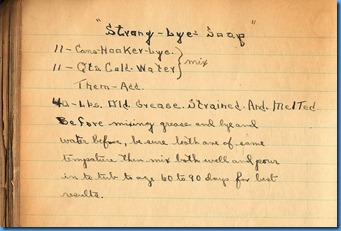 "Strong-Lye-Soap"
11-Cans-Hooker-Lye.
11-Qts Cold-Water } mix
Them-Add.
40-Lbs. Old Grease. Strained. And. Melted
Before mixing grease and lye and
water before, be sure both are of same
tempature then mix both well and pour
in to tub to age 60 to 90 days for best
results.